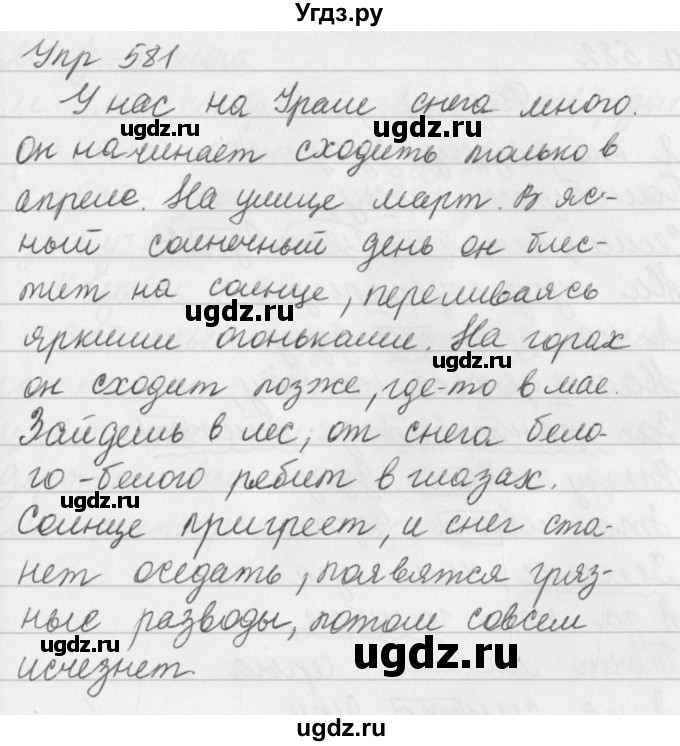 Угдз.ру
Упр 581
У нас на Урале снега много.
ugdz.ru ugdz.ru
Он начинает сходить только в
апреле. На улице март. В яс-
ный солнечный день он блес-
тит на солнце, переливаясь
ugdz.ru
яркими огоньками. На горах
ugdz.ru
он сходит позже, где-то в мае.
Зайдешь в лес, от снега бело-
го-белого рябит в глазах.
ugdz.ru
Солнце пригреет, и снег ста-
нет оседать, появятся гряз-
ные разводы, потом совсем
ugdz.ru ugdz.ru
исчезнет
ugdz.ru